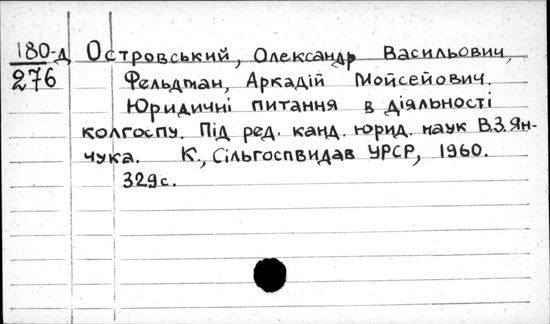 180-д
276
Островський, Олександр Васильович,
Фельдман, Аркадій Мойсейович.
Юридичні питання в діяльності
колгоспу. Під ред. канд. юрид. наук В.З.Ян-
чука. К., Сільгоспвидав УРСР, 1960.
329с.